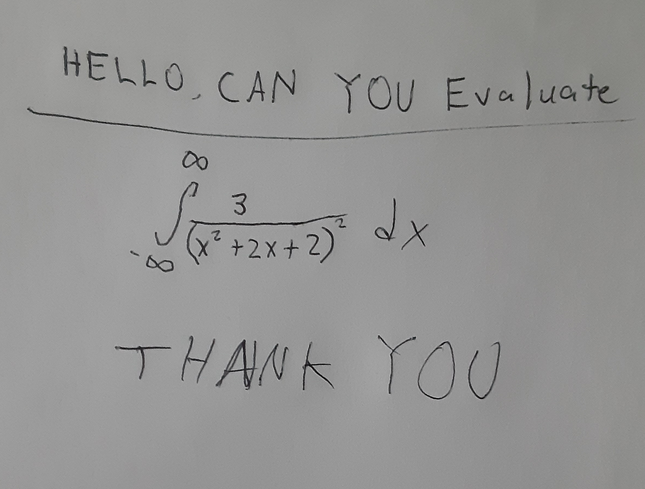 HELLO, CAN YOU Evaluate
∫_{-∞}^{∞} 3/(x² + 2x + 2)² dx
THANK YOU